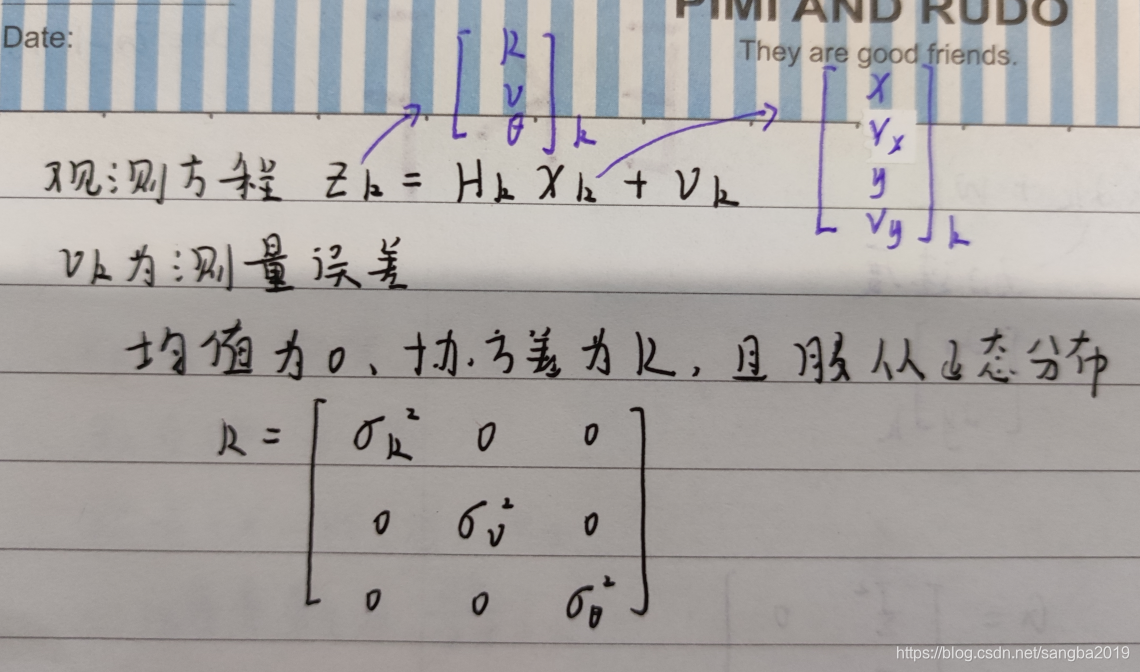 PIMI AND RUDO
Date:
They are good friends.
[R V θ]k
[x Vx y Vy]k
观测方程 Zk = Hk Xk + Vk
Vk为测量误差
均值为0、协方差为R,且服从正态分布
R = [σR² 0 0
0 σV² 0
0 0 σθ²]
https://blog.csdn.net/sangba2019